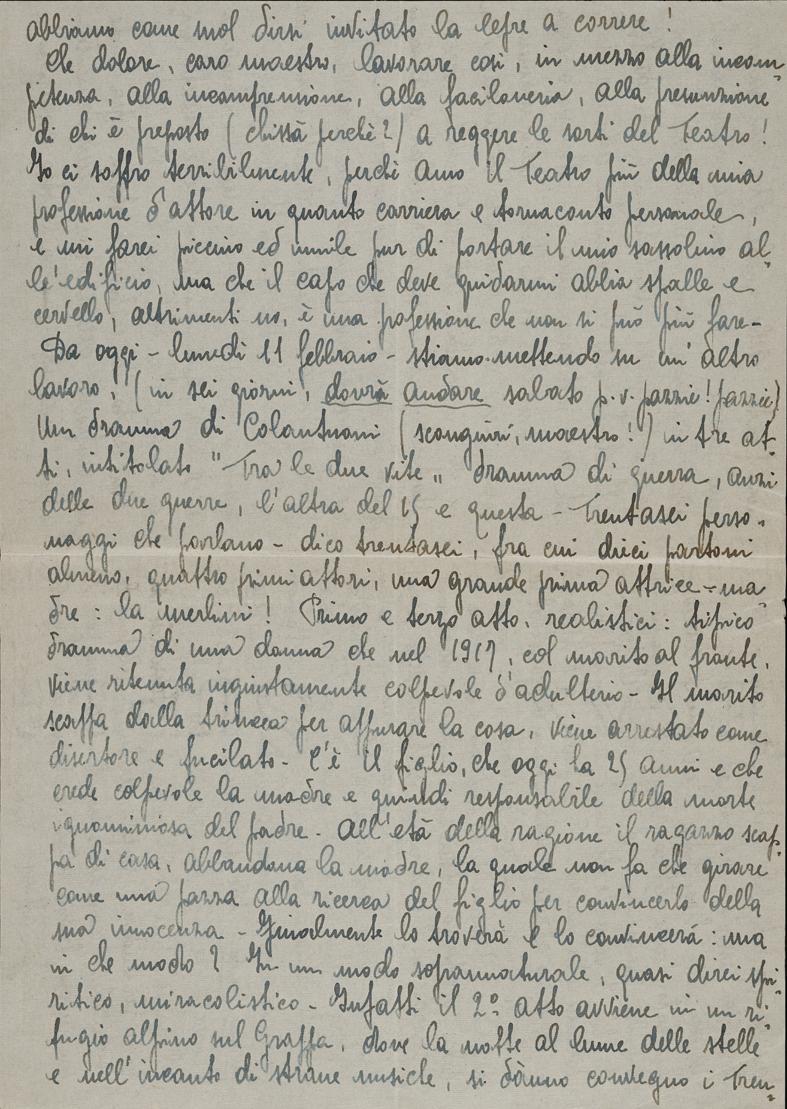 abbiamo come suol dirsi invitato la lepre a correre!
Che dolore, caro maestro, lavorare così, in mezzo alla incom-
petenza, alla incomprensione, alla faciloneria, alla presunzione
di chi è preposto (chissà perchè?) a reggere le sorti del Teatro!
Io ci soffro terribilmente, perchè amo il Teatro più della mia
professione d'attore in quanto carriera e tornaconto personale,
e mi farei piccino ed umile pur di portare il mio sassolino al-
l'edificio, ma che il capo che deve guidarmi abbia spalle e
cervello, altrimenti no, è una pofessione che non si può più fare-
Da oggi - lunedì 11 febbraio - stiamo mettendo su un'altro
lavoro, (in sei giorni, dovrà andare sabato p.v. pazzie! pazzie)
Un dramma di Colantuoni (scongiuri, maestro!) in tre at-
ti, intitolato "Tra le due vite" dramma di guerra, anzi
delle due guerre, l'altra del 15 e questa - Trentasei perso-
naggi che parlano - dico trentasei, fra cui dieci partoni
almeno, quattro primi attori, una grande prima attrice - ma-
dre: la Merlini! Primo e terzo atto, realistici: tipico
dramma di una donna che nel 1917, col marito al fronte,
viene ritenuta ingiustamente colpevole d'adulterio - Il marito
scappa dalla trincea per appurare la cosa, viene arrestato come
disertore e fucilato - C'è il figlio, che oggi ha 25 anni e che
crede colpevole la madre e quindi responsabile della morte
ignominiosa del padre - All'età della ragione il ragazzo scap-
pa di casa, abbandona la madre, la quale non fa che girare
come una pazza alla ricerca del figlio per convincerlo della
sua innocenza - Finalmente lo troverà e lo convincerà: ma
in che modo? In un modo soprannaturale, quasi direi spi-
ritico, miracolistico - Infatti il 2º atto avviene in un ri-
fugio alpino sul Grappa, dove la notte al lume delle stelle
e nell'incanto di strane musiche, si dànno convegno i Tren-